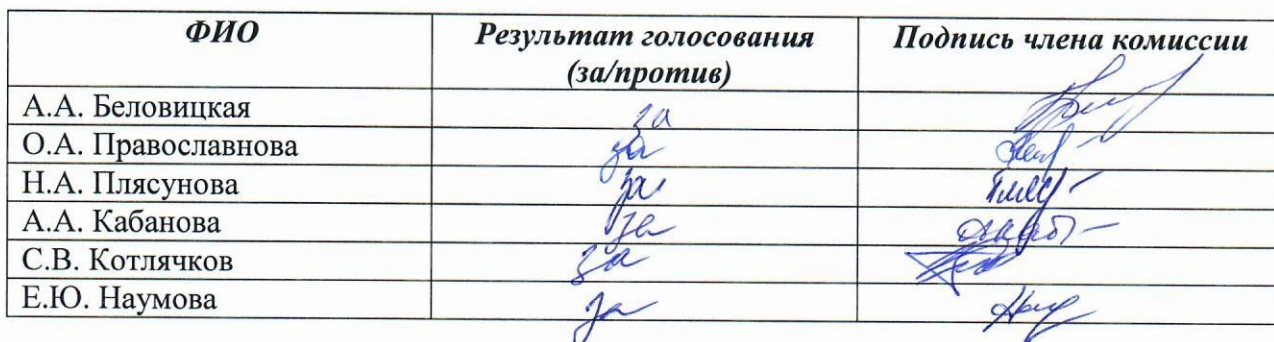 ФИО Результат голосования Подпись члена комиссии
(за/против)
А.А. Беловицкая за
О.А. Православнова за
Н.А. Плясунова за
А.А. Кабанова за
С.В. Котлячков за
Е.Ю. Наумова за